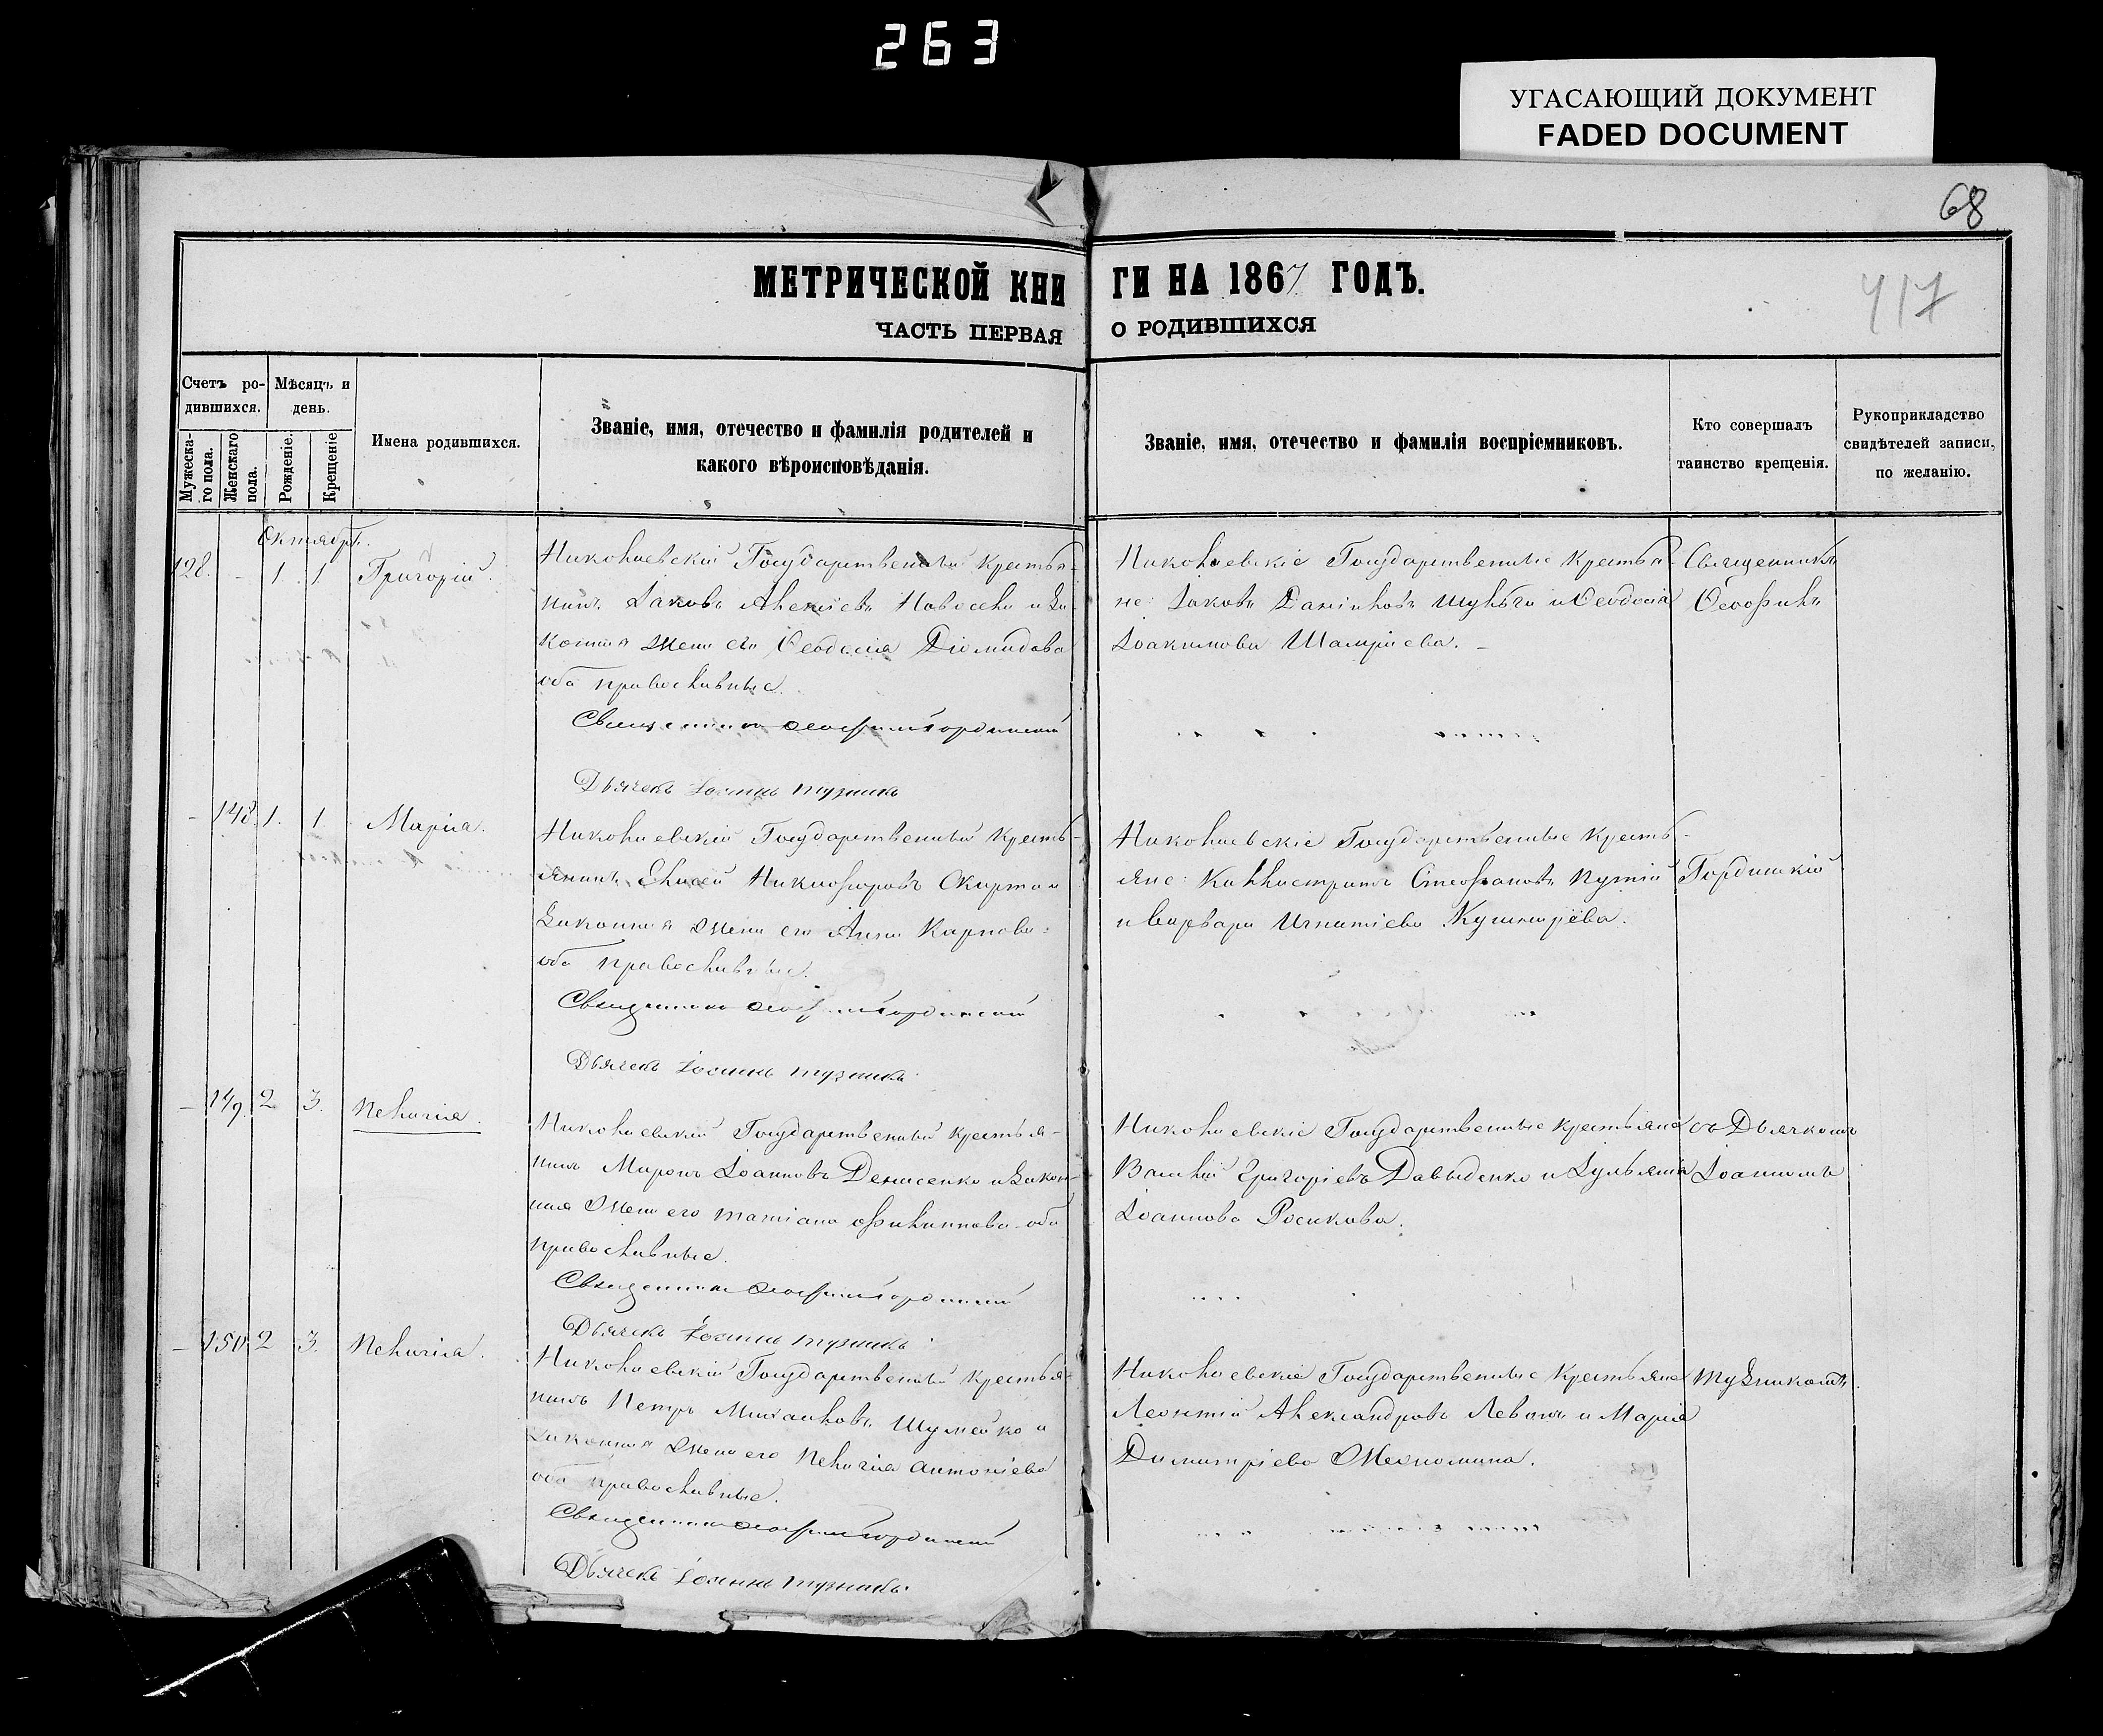 263
УГАСАЮЩИЙ ДОКУМЕНТ
FADED DOCUMENT
68
МЕТРИЧЕСКОЙ КНИГИ НА 1867 ГОДЪ.
417
ЧАСТЬ ПЕРВАЯ О РОДИВШИХСЯ
Счетъ ро-
дившихся.
Мужеска-
го пола.
Женскаго
пола.
Мѣсяцъ и
день.
Рожденіе.
Крещеніе
Имена родившихся.
Званіе, имя, отечество и фамилія родителей и
какого вѣроисповѣданія.
Званіе, имя, отечество и фамилія воспріемниковъ.
Кто совершалъ
таинство крещенія.
Рукоприкладство
свидѣтелей записи,
по желанію.
Октябрь.
128. - 1. 1. Григорій.
Николаевскій Государственный крестья-
нинъ Іаковъ Алексіевъ и за-
конная жена его Ѳеодосія Діомидова
оба православные.
Священникъ Ѳеофилъ Гординскій
Дьячекъ Іоаннъ Тузникъ
Николаевскіе Государственные крестья-
не: Іаковъ Даніиловъ Шульга и Ѳеодосія
Іоакимова
Священникъ
Ѳеофилъ
- 148. 1. 1. Марія.
Николаевскій Государственный кресть-
янинъ Елисей Никифоровъ и
законная жена его Анна Карпова:
оба православные.
Священникъ Ѳеофилъ Гординскій
Дьячекъ Іоаннъ Тузникъ
Николаевскіе Государственные кресть-
яне: Каллистратъ Стефановъ Путій
и Варвара Игнатіева
Гординскій
- 149. 2 3. Пелагія.
Николаевскій Государственный крестья-
нинъ Миронъ Іоанновъ Денисенко и закон-
ная жена его Татіана Филиппова оба
православные.
Священникъ Ѳеофилъ Гординскій
Дьячекъ Іоаннъ Тузникъ
Николаевскіе Государственные крестьяне
Василій Григоріевъ Давыденко и Іульянія
Іоаннова Росикова.
съ Дьячкомъ
Іоанномъ
- 150. 2 3. Пелагія.
Николаевскій Государственный крестья-
нинъ Петръ Михаиловъ Шумейко и
законная жена его Пелагія Антоніева
оба православные.
Священникъ Ѳеофилъ Гординскій
Дьячекъ Іоаннъ Тузникъ
Николаевскіе Государственные крестьяне
Леонтій Александровъ и Марія
Димитріева
Тузникомъ.